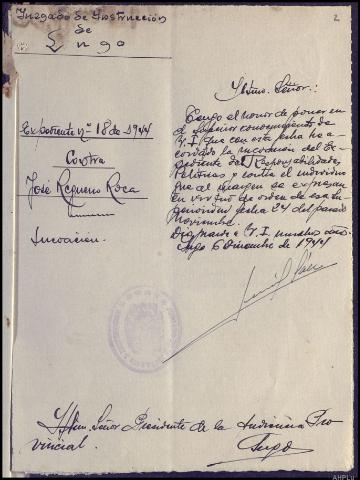 Juzgado de Instrucción
de
Lugo
2
Iltmo. Señor:
Expediente nº 18 de 1944
Contra
José Regueiro Roca
Incoación.
Tengo el honor de poner en
el Superior conocimiento de
V.I. que con esta fecha he a-
cordado la incoación del Ex-
pediente de Responsabilidades
Políticas y contra el individuo
que al margen se expresa
en virtud de orden de esa Su-
perioridad fecha 24 del pasado
Noviembre.
Dios guarde a V.I. muchos años
Lugo 6 Diciembre de 1944
Iltmo. Señor Presidente de la Audiencia Pro
vincial.
Lugo
AHPLu